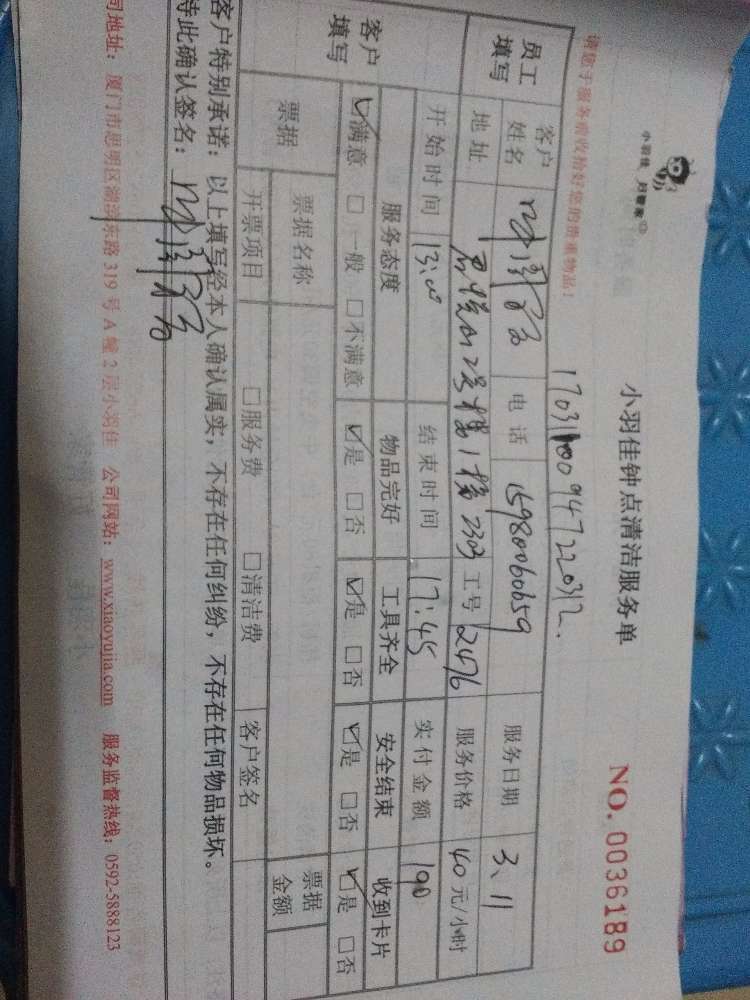 小羽佳 归管家
小羽佳钟点清洁服务单
NO. 0036189
请您于服务前收拾好您的贵重物品！
员工填写 客户姓名 电话 15980060659 服务日期 3.11
地址 2号楼1楼2303 工号 12476 服务价格 40元/小时
开始时间 13:00 结束时间 17:45 实付金额 190
客户填写 服务态度 物品完好 工具齐全 安全结束 收到卡片
☑满意 □一般 □不满意 ☑是 □否 ☑是 □否 ☑是 □否 ☑是 □否
票据 票据名称 票据金额
开票项目 □服务费 □清洁费 客户签名
客户特别承诺：以上填写经本人确认属实，不存在任何纠纷，不存在任何物品损坏。
特此确认签名：
司地址：厦门市思明区湖滨东路319号A幢2层小羽佳 公司网站：www.xiaoyujia.com 服务监督热线：0592-5888123